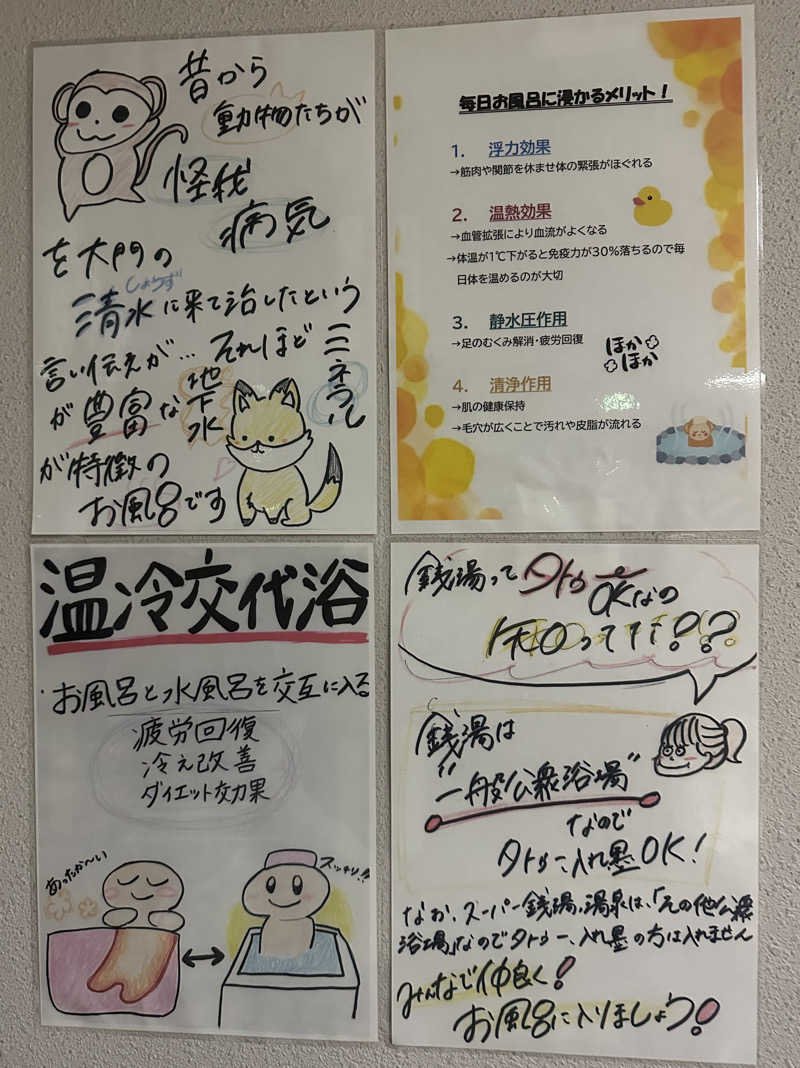 昔から
動物たちが
怪我
病気
を大門の
しょうず
清水に来て治したという
言い伝えが…それほどミネラル
が豊富な地下水
が特徴の
お風呂です
毎日お風呂に浸かるメリット！
1. 浮力効果
→筋肉や関節を休ませ体の緊張がほぐれる
2. 温熱効果
→血管拡張により血流がよくなる
→体温が1℃下がると免疫力が30％落ちるので毎
日体を温めるのが大切
3. 静水圧作用
→足のむくみ解消・疲労回復
ほか
ほか
4. 清浄作用
→肌の健康保持
→毛穴が広くことで汚れや皮脂が流れる
温冷交代浴
・お風呂と水風呂を交互に入る
疲労回復
冷え改善
ダイエット効果
あったか〜い
スッキリ!!
銭湯ってタトゥーOKなの
知ってす??
銭湯は
"一般公衆浴場"
なので
タトゥー、入れ墨OK!
なお、スーパー銭湯、温泉は、「その他公衆
浴場」なのでタトゥー、入れ墨の方は入れません
みんなで仲良く!
お風呂に入りましょう!